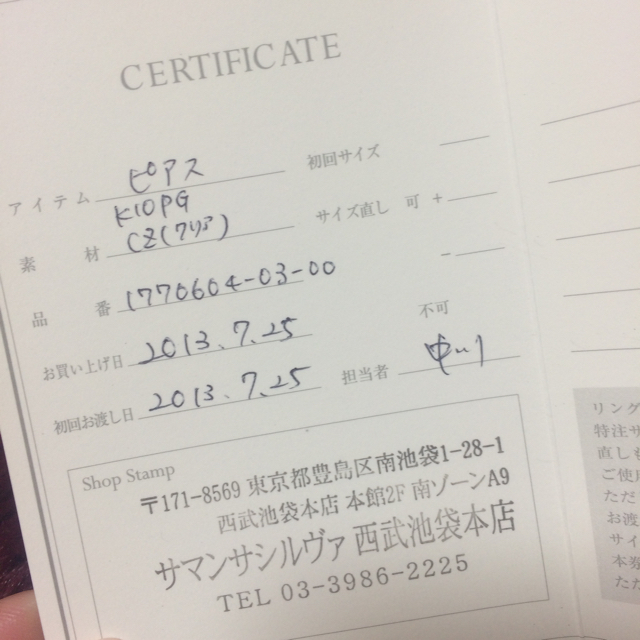 CERTIFICATE
アイテム ピアス 初回サイズ
素材 K10PG CZ(クリア) サイズ直し 可 +
-
品番 1770604-03-00
不可
お買い上げ日 2013.7.25
初回お渡し日 2013.7.25 担当者 中川
Shop Stamp
〒171-8569 東京都豊島区南池袋1-28-1
西武池袋本店 本館2F 南ゾーンA9
サマンサシルヴァ 西武池袋本店
TEL 03-3986-2225
リング
特注サ
直しも
ご使用
ただ
お渡
サイ
本券
ただ